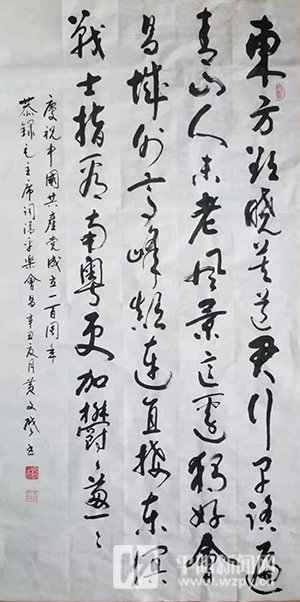 東方欲曉莫道君行早踏遍
青山人未老風景這邊獨好會
昌城外高峰顛連直接东溟
戰士指看南粵更加欝〻蔥〻
慶祝中國共產党成立一百周年
恭録毛主席词清平樂會昌辛丑夏月黄文书
平阳新闻网